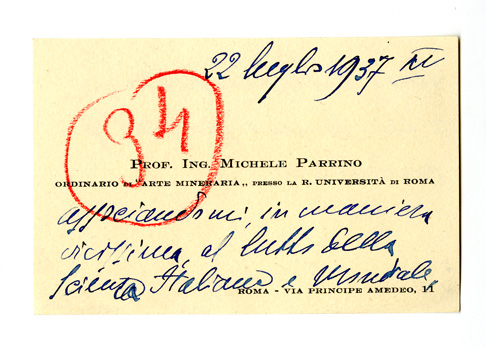 22 luglio 1937 XV
34
PROF. ING. MICHELE PARRINO
ORDINARIO DI "ARTE MINERARIA,, PRESSO LA R. UNIVERSITÀ DI ROMA
associandomi, in maniera
vivissima, al lutto della
Scienza Italiana e Mondiale.
ROMA - VIA PRINCIPE AMEDEO, 11